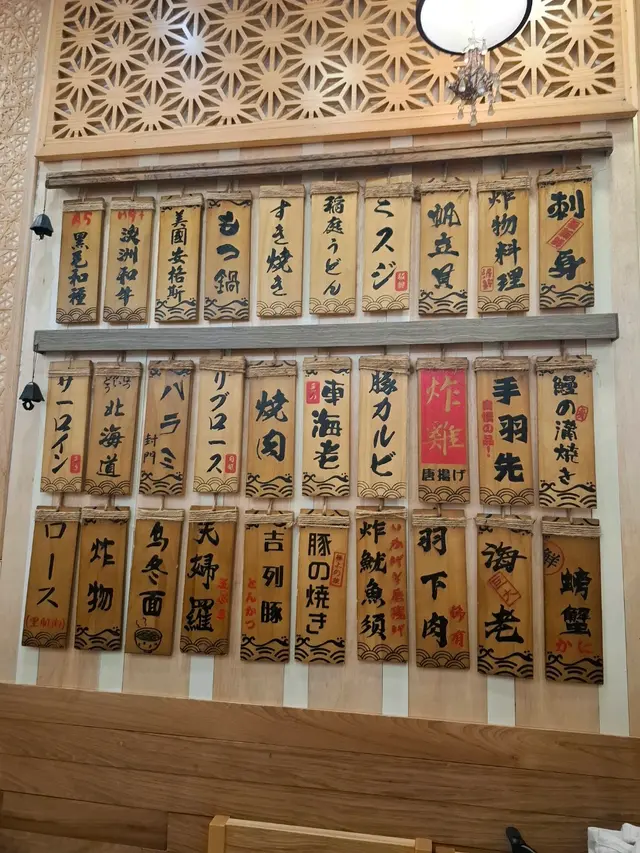 刺身
炸物料理
帆立貝
ミスジ
稲庭うどん
すき焼き
もつ鍋
美國安格斯
澳洲和牛
A5
黑毛和種
鰻の蒲焼き
手羽先
炸雞
唐揚げ
豚カルビ
車海老
焼肉
リブロース
ハラミ
封門
北海道
サーロイン
螃蟹
かに
海老
羽下肉
炸魷魚須
いかげそ唐揚げ
豚の焼き
吉列豚
とんかつ
天婦羅
天ぷら
烏冬面
炸物
ロース